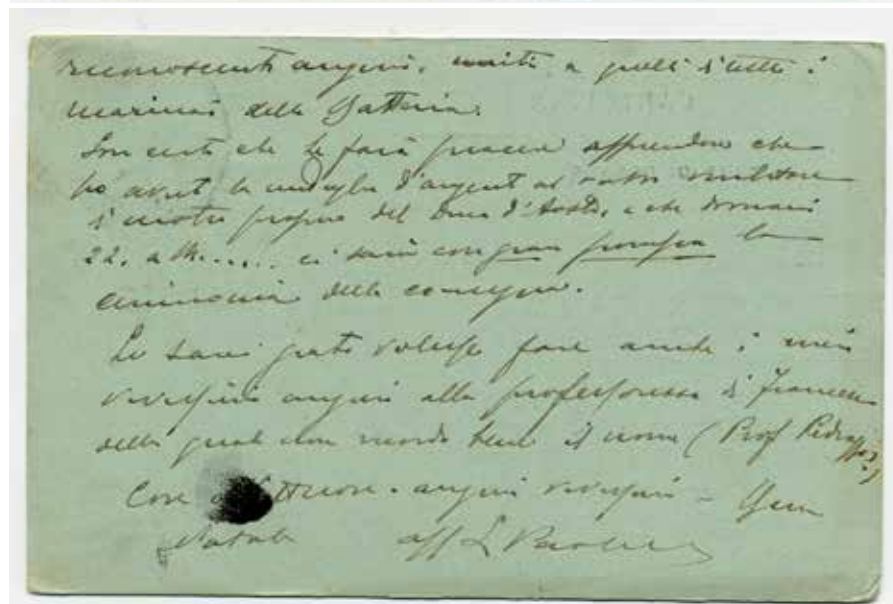 riconoscenti auguri, uniti a quelli di tutti i
marinai della Batteria.
Son certo che le farà piacere apprendere che
ho avuto la medaglia d'argento al valor militare
di motu proprio del Duca d'Aosta, e che domani
22, a M..... ci sarà con gran pompa la
cerimonia della consegna.
Le sarei grato volesse fare anche i miei
vivissimi auguri alla professoressa di francese
della quale non ricordo bene il nome (Prof Pedrazzi?)
Con auguri vivissimi -
Natale aff L